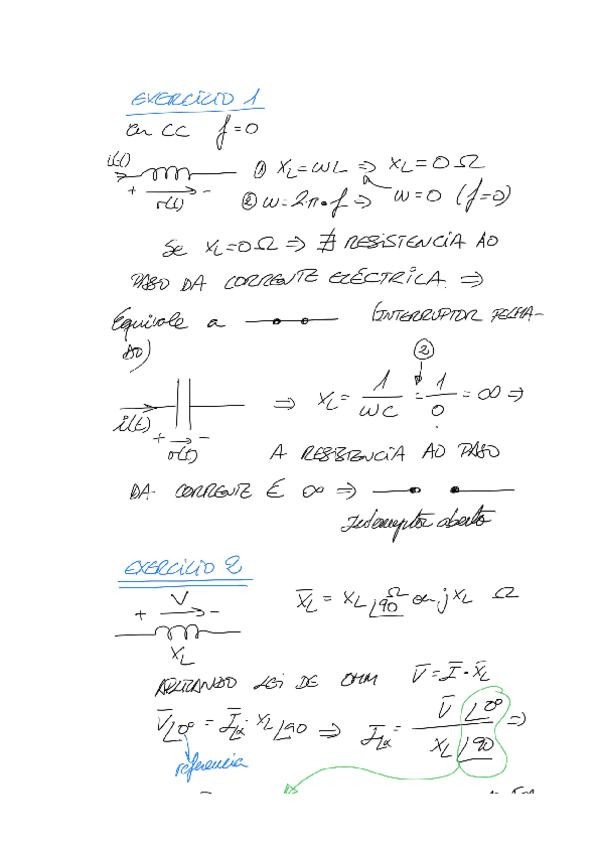 EXERCICIO 1
En CC f=0
i(t) ① XL=WL ⇒ XL=0Ω
+ v(t) - ② W=2·π·f ⇒ W=0 (f=0)
Se XL=0Ω ⇒ ∄ RESISTENCIA AO
PASO DA CORRENTE ELÉCTRICA ⇒
Equivale a (INTERRUPTOR PECHA-
DO)
②
i(t) ⇒ XL = 1/WC = 1/0 = ∞ ⇒
+ v(t) - A RESISTENCIA AO PASO
DA CORRENTE É ∞ ⇒
Interruptor aberto
EXERCICIO 2
+ V - X̅L = XL∠90 Ω ou jXL Ω
XL
APLICANDO LEI DE OHM V̅=I̅·X̅L
V̅∠0° = I̅∠α · XL∠90 ⇒ I̅∠α = V̅∠0° / XL∠90 ⇒
referencia